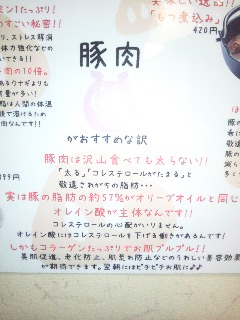 ミン1たっぷり!
のすごい秘密!!
り、ストレス解消
体力強化などの
いできる!!
肉の10倍。
あるウナギよりも
量が多い!
脂は人間の体温
で溶けるため
肉なんです!!
美味しい逸品!!
「もつ煮込み」
420円
豚肉
がおすすめな訳
豚肉は沢山食べても太らない!!
「太る」「コレステロールがたまる」と
敬遠されがちの脂肪・・・
399円
実は豚の脂肪の約57%がオリーブオイルと同じ
オレイン酸が主体なんです!!
コレステロールの心配がいりません。
オレイン酸にはコレステロールを下げる働きがあるんです!
しかもコラーゲンたっぷりでお肌プルプル!!
美肌促進、老化防止、肌荒れ防止などのうれしい美容効果
が期待できます。翌朝にはピチピチお肌に♪♪